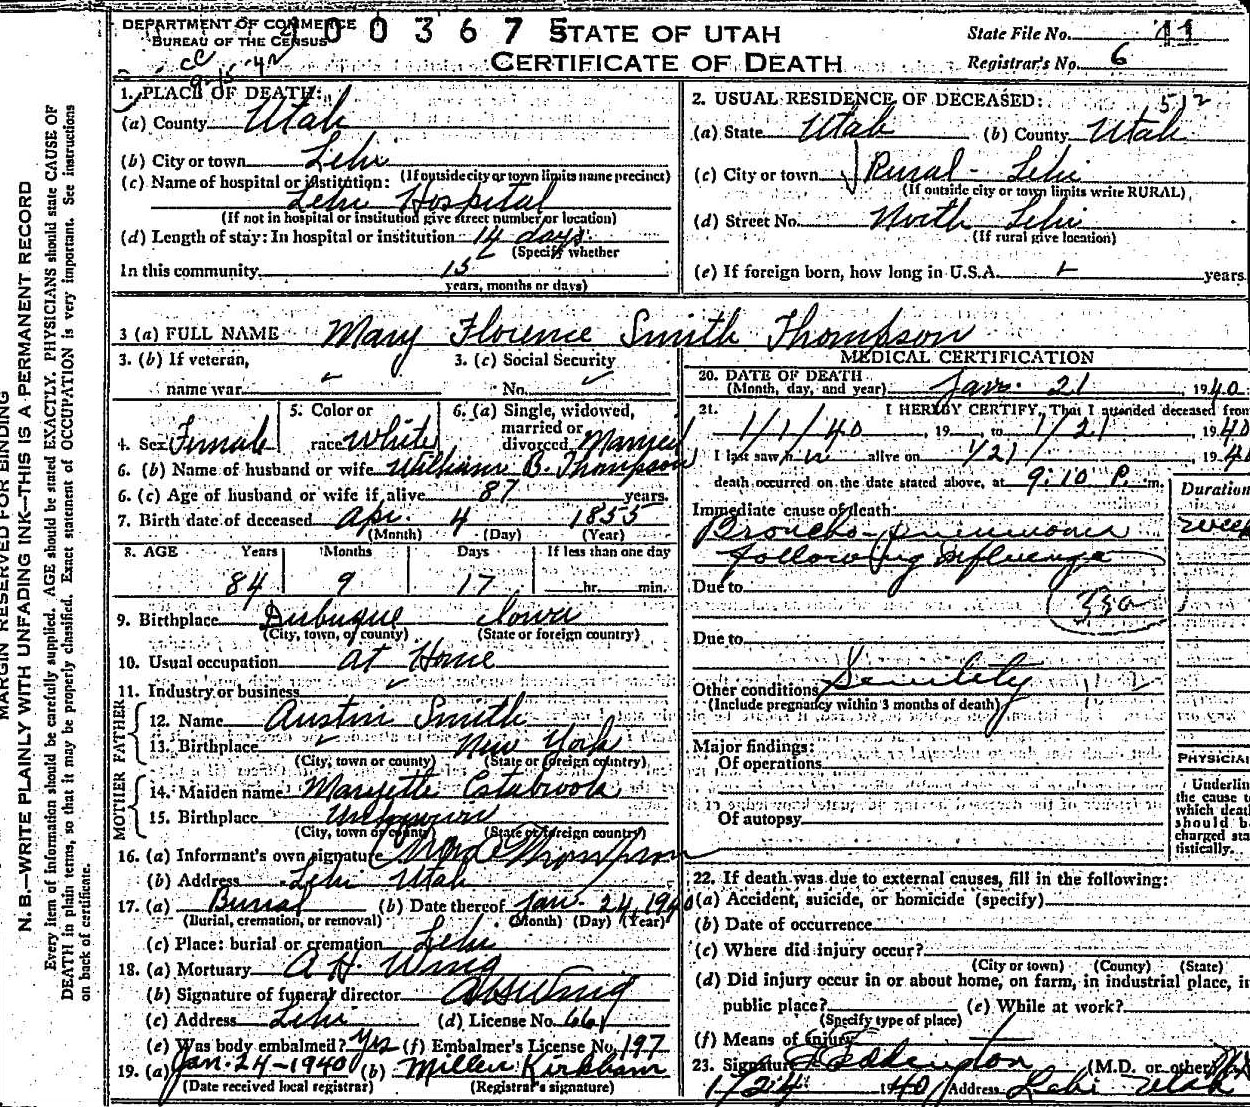 DEPARTMENT OF COMMERCE
BUREAU OF THE CENSUS
0 0 3 6 7 5
STATE OF UTAH
CERTIFICATE OF DEATH
State File No. 11
Registrar's No. 6
1. PLACE OF DEATH:
(a) County Utah
(b) City or town Lehi
(If outside city or town limits name precinct)
(c) Name of hospital or institution:
Lehi Hospital
(If not in hospital or institution give street number or location)
(d) Length of stay: In hospital or institution 14 days
(Specify whether
In this community 15
years, months or days)
2. USUAL RESIDENCE OF DECEASED: 512
(a) State Utah (b) County Utah
(c) City or town Rural - Lehi
(If outside city or town limits write RURAL)
(d) Street No. North Lehi
(If rural give location)
(e) If foreign born, how long in U.S.A. years
3 (a) FULL NAME Mary Florence Smith Thompson
3. (b) If veteran,
name war
3. (c) Social Security
No.
4. Sex Female
5. Color or
race White
6. (a) Single, widowed,
married or
divorced Married
6. (b) Name of husband or wife William B. Thompson
6. (c) Age of husband or wife if alive 87 years.
7. Birth date of deceased Apr. 4 1855
(Month) (Day) (Year)
8. AGE Years Months Days If less than one day
84 9 17 hr. min.
9. Birthplace Dubuque Iowa
(City, town, or county) (State or foreign country)
10. Usual occupation At Home
11. Industry or business
FATHER
12. Name Austin Smith
13. Birthplace New York
(City, town or county) (State or foreign country)
MOTHER
14. Maiden name Maryette Estabrook
15. Birthplace Unknown
(City, town or county) (State or foreign country)
16. (a) Informant's own signature Thompson
(b) Address Lehi Utah
17. (a) Burial (b) Date thereof Jan. 24, 1940
(Burial, cremation, or removal) (Month) (Day) (Year)
(c) Place: burial or cremation Lehi
18. (a) Mortuary A H. Wing
(b) Signature of funeral director Wing
(c) Address Lehi (d) License No. 661
(e) Was body embalmed? Yes (f) Embalmer's License No. 197
19. (a) Jan. 24 - 1940 (b) Millen Kirkham
(Date received local registrar) (Registrar's signature)
MEDICAL CERTIFICATION
20. DATE OF DEATH
(Month, day, and year) Jan. 21, 1940
21. I HEREBY CERTIFY, That I attended deceased from
1/1/40, 19 to 1/21, 1940
I last saw her alive on 1/21, 194
death occurred on the date stated above, at 9:10 P. m.
Duration
Immediate cause of death:
Broncho-pneumonia
following Influenza
Due to
33a
Due to
Other conditions Senility
(Include pregnancy within 3 months of death)
Major findings:
Of operations
Of autopsy
PHYSICIA
Underlin
the cause t
which deat
should b
charged sta
tistically.
22. If death was due to external causes, fill in the following:
(a) Accident, suicide, or homicide (specify)
(b) Date of occurrence
(c) Where did injury occur?
(City or town) (County) (State)
(d) Did injury occur in or about home, on farm, in industrial place, in
public place? (e) While at work?
(Specify type of place)
(f) Means of injury
23. Signature Eddington (M.D. or other)
1/24 1940 Address Lehi Utah
MARGIN RESERVED FOR BINDING
N. B.—WRITE PLAINLY WITH UNFADING INK—THIS IS A PERMANENT RECORD
Every item of information should be carefully supplied. AGE should be stated EXACTLY. PHYSICIANS should state CAUSE OF
DEATH in plain terms, so that it may be properly classified. Exact statement of OCCUPATION is very important. See instructions
on back of certificate.